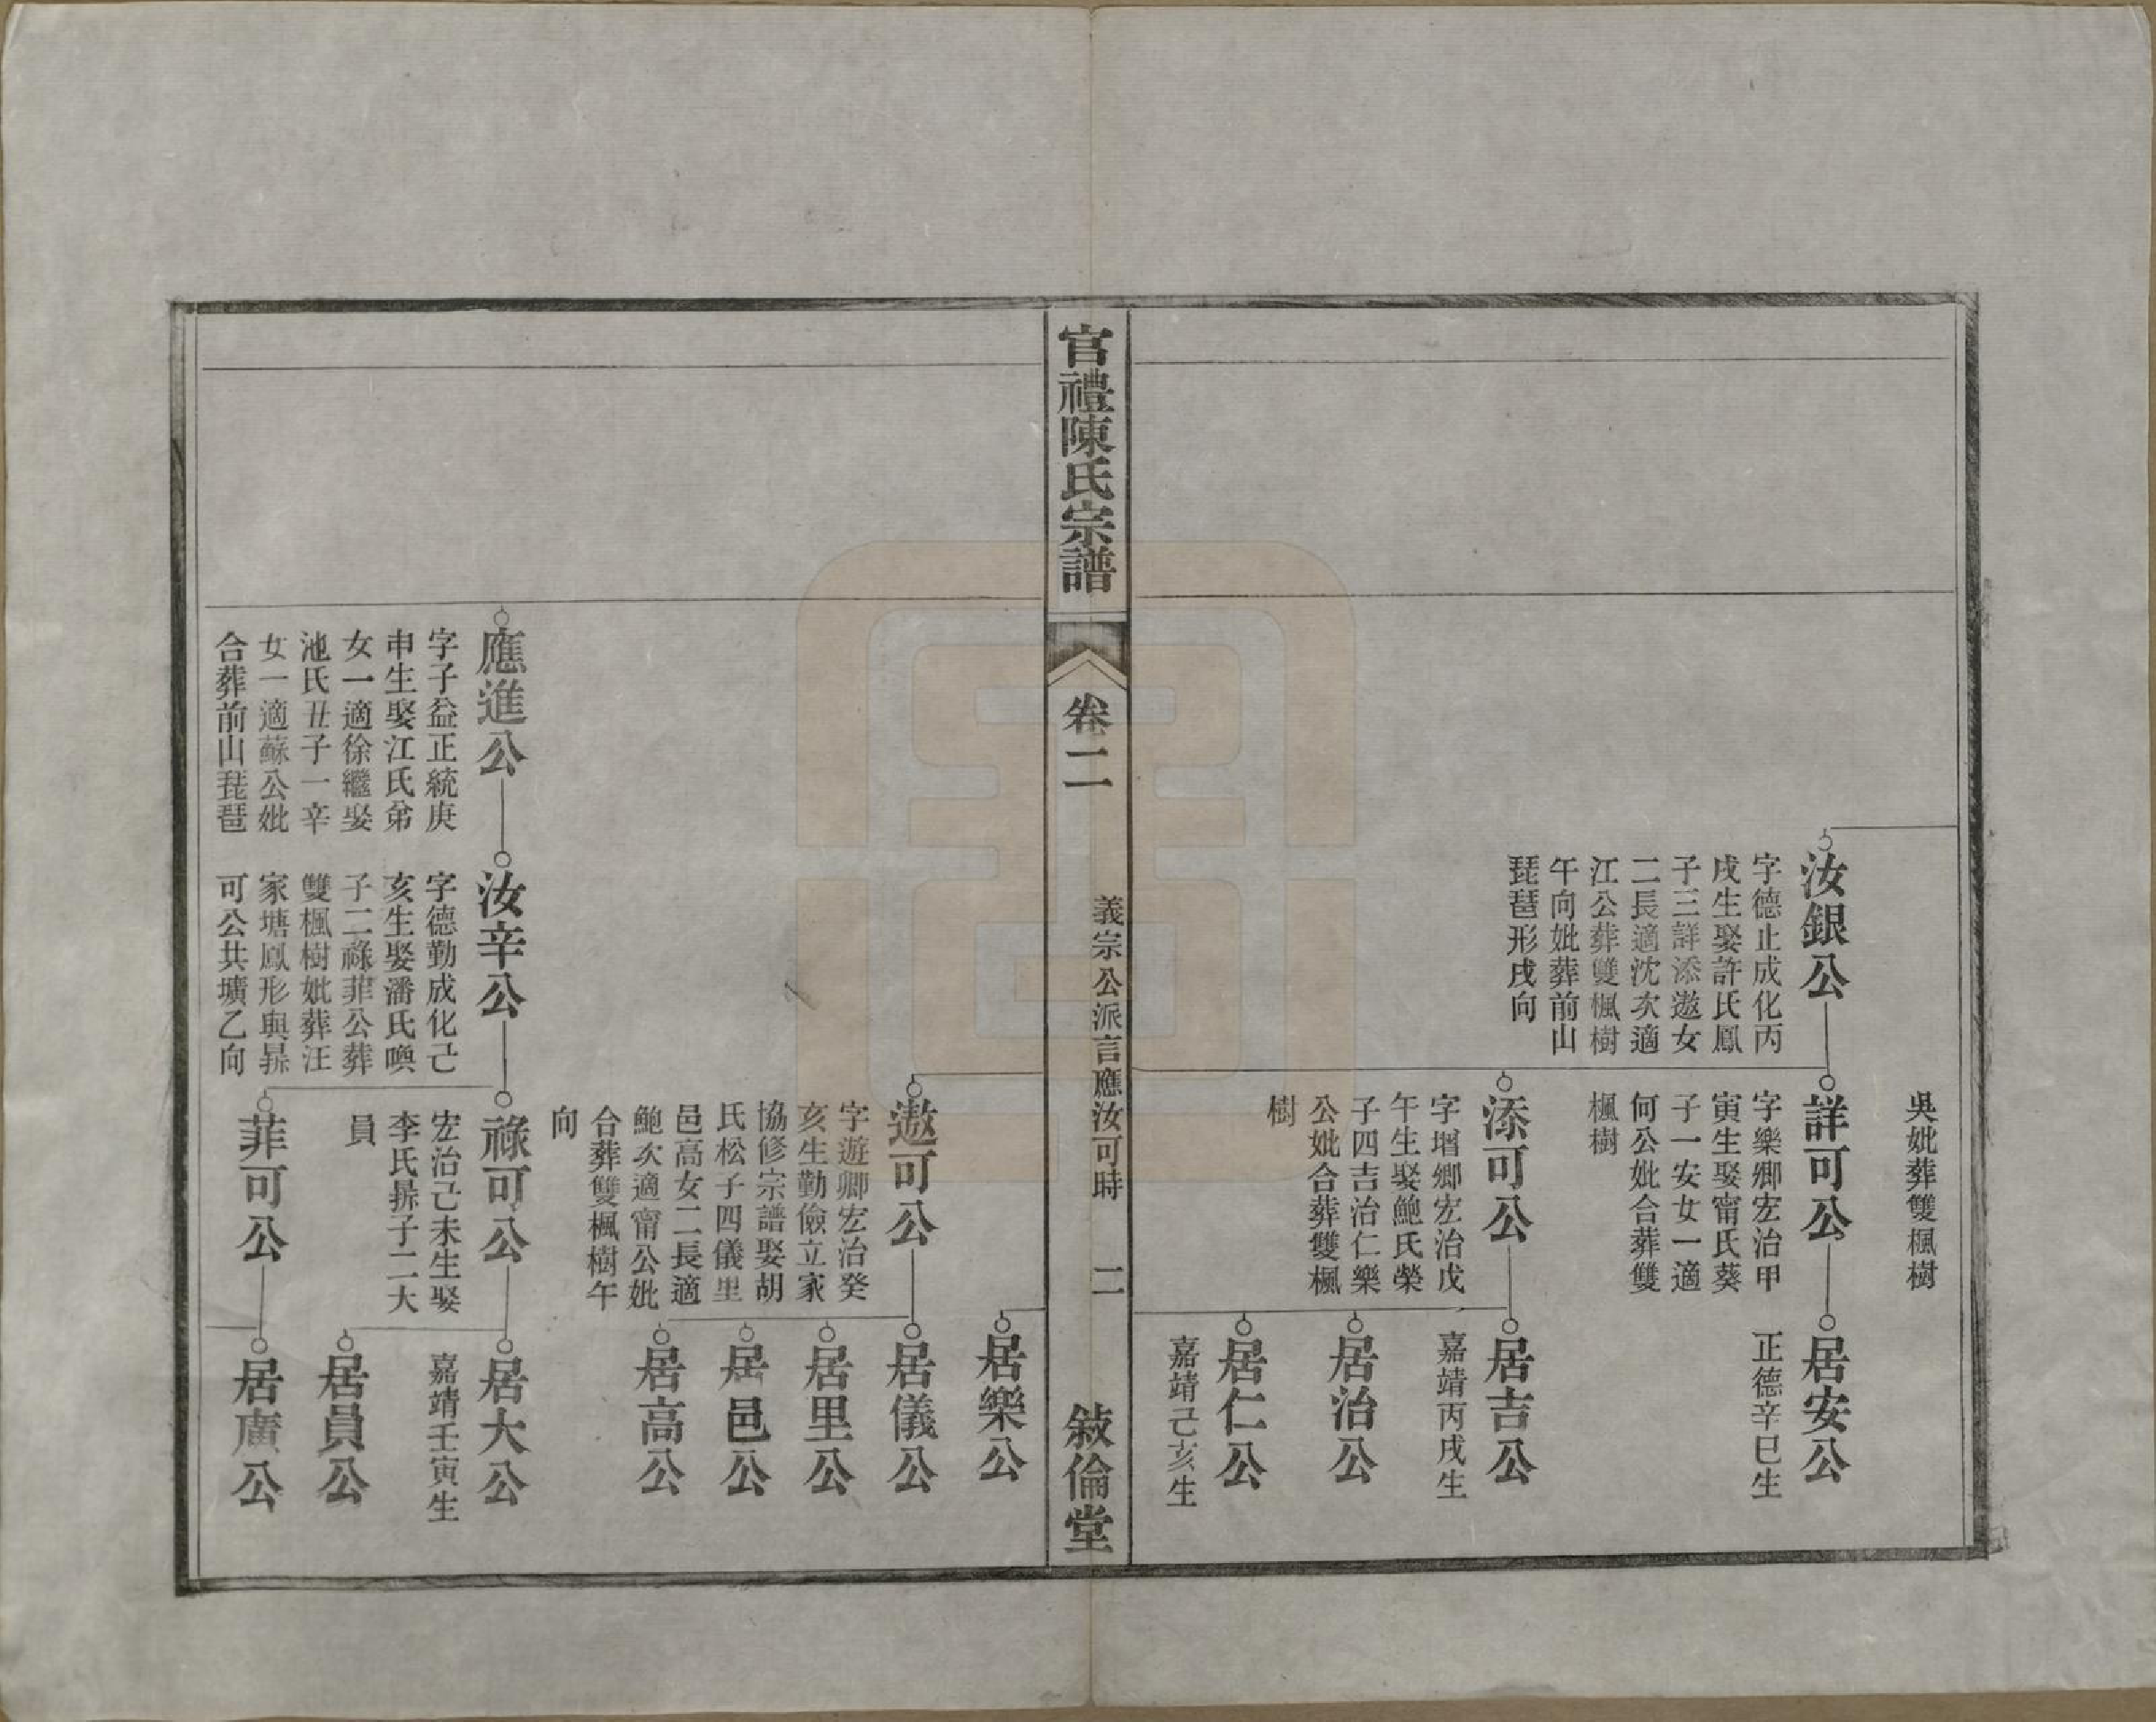 吳妣葬雙楓樹
汝銀公
字德止成化丙
戌生娶許氏鳳
子三詳添遨女
二長適沈次適
江公葬雙楓樹
午向妣葬前山
琵琶形戌向
詳可公
字樂卿宏治甲
寅生娶甯氏葵
子一安女一適
何公妣合葬雙
楓樹
居安公
正德辛巳生
添可公
字增卿宏治戊
午生娶鮑氏榮
子四吉治仁樂
公妣合葬雙楓
樹
居吉公
嘉靖丙戌生
居治公
居仁公
嘉靖己亥生
官禮陳氏宗譜
卷二
義宗公派言應汝可時
二
敘倫堂
居樂公
遨可公
字遊卿宏治癸
亥生勤儉立家
協修宗譜娶胡
氏松子四儀里
邑高女二長適
鮑次適甯公妣
合葬雙楓樹午
向
居儀公
居里公
居邑公
居高公
應進公
字子益正統庚
申生娶江氏弟
女一適徐繼娶
池氏丑子一辛
女一適蘇公妣
合葬前山琵琶
汝辛公
字德勤成化己
亥生娶潘氏喚
子二祿菲公葬
雙楓樹妣葬汪
家塘鳳形與
可公共壙乙向
祿可公
宏治己未生娶
李氏子二大
員
居大公
嘉靖壬寅生
居員公
菲可公
居廣公